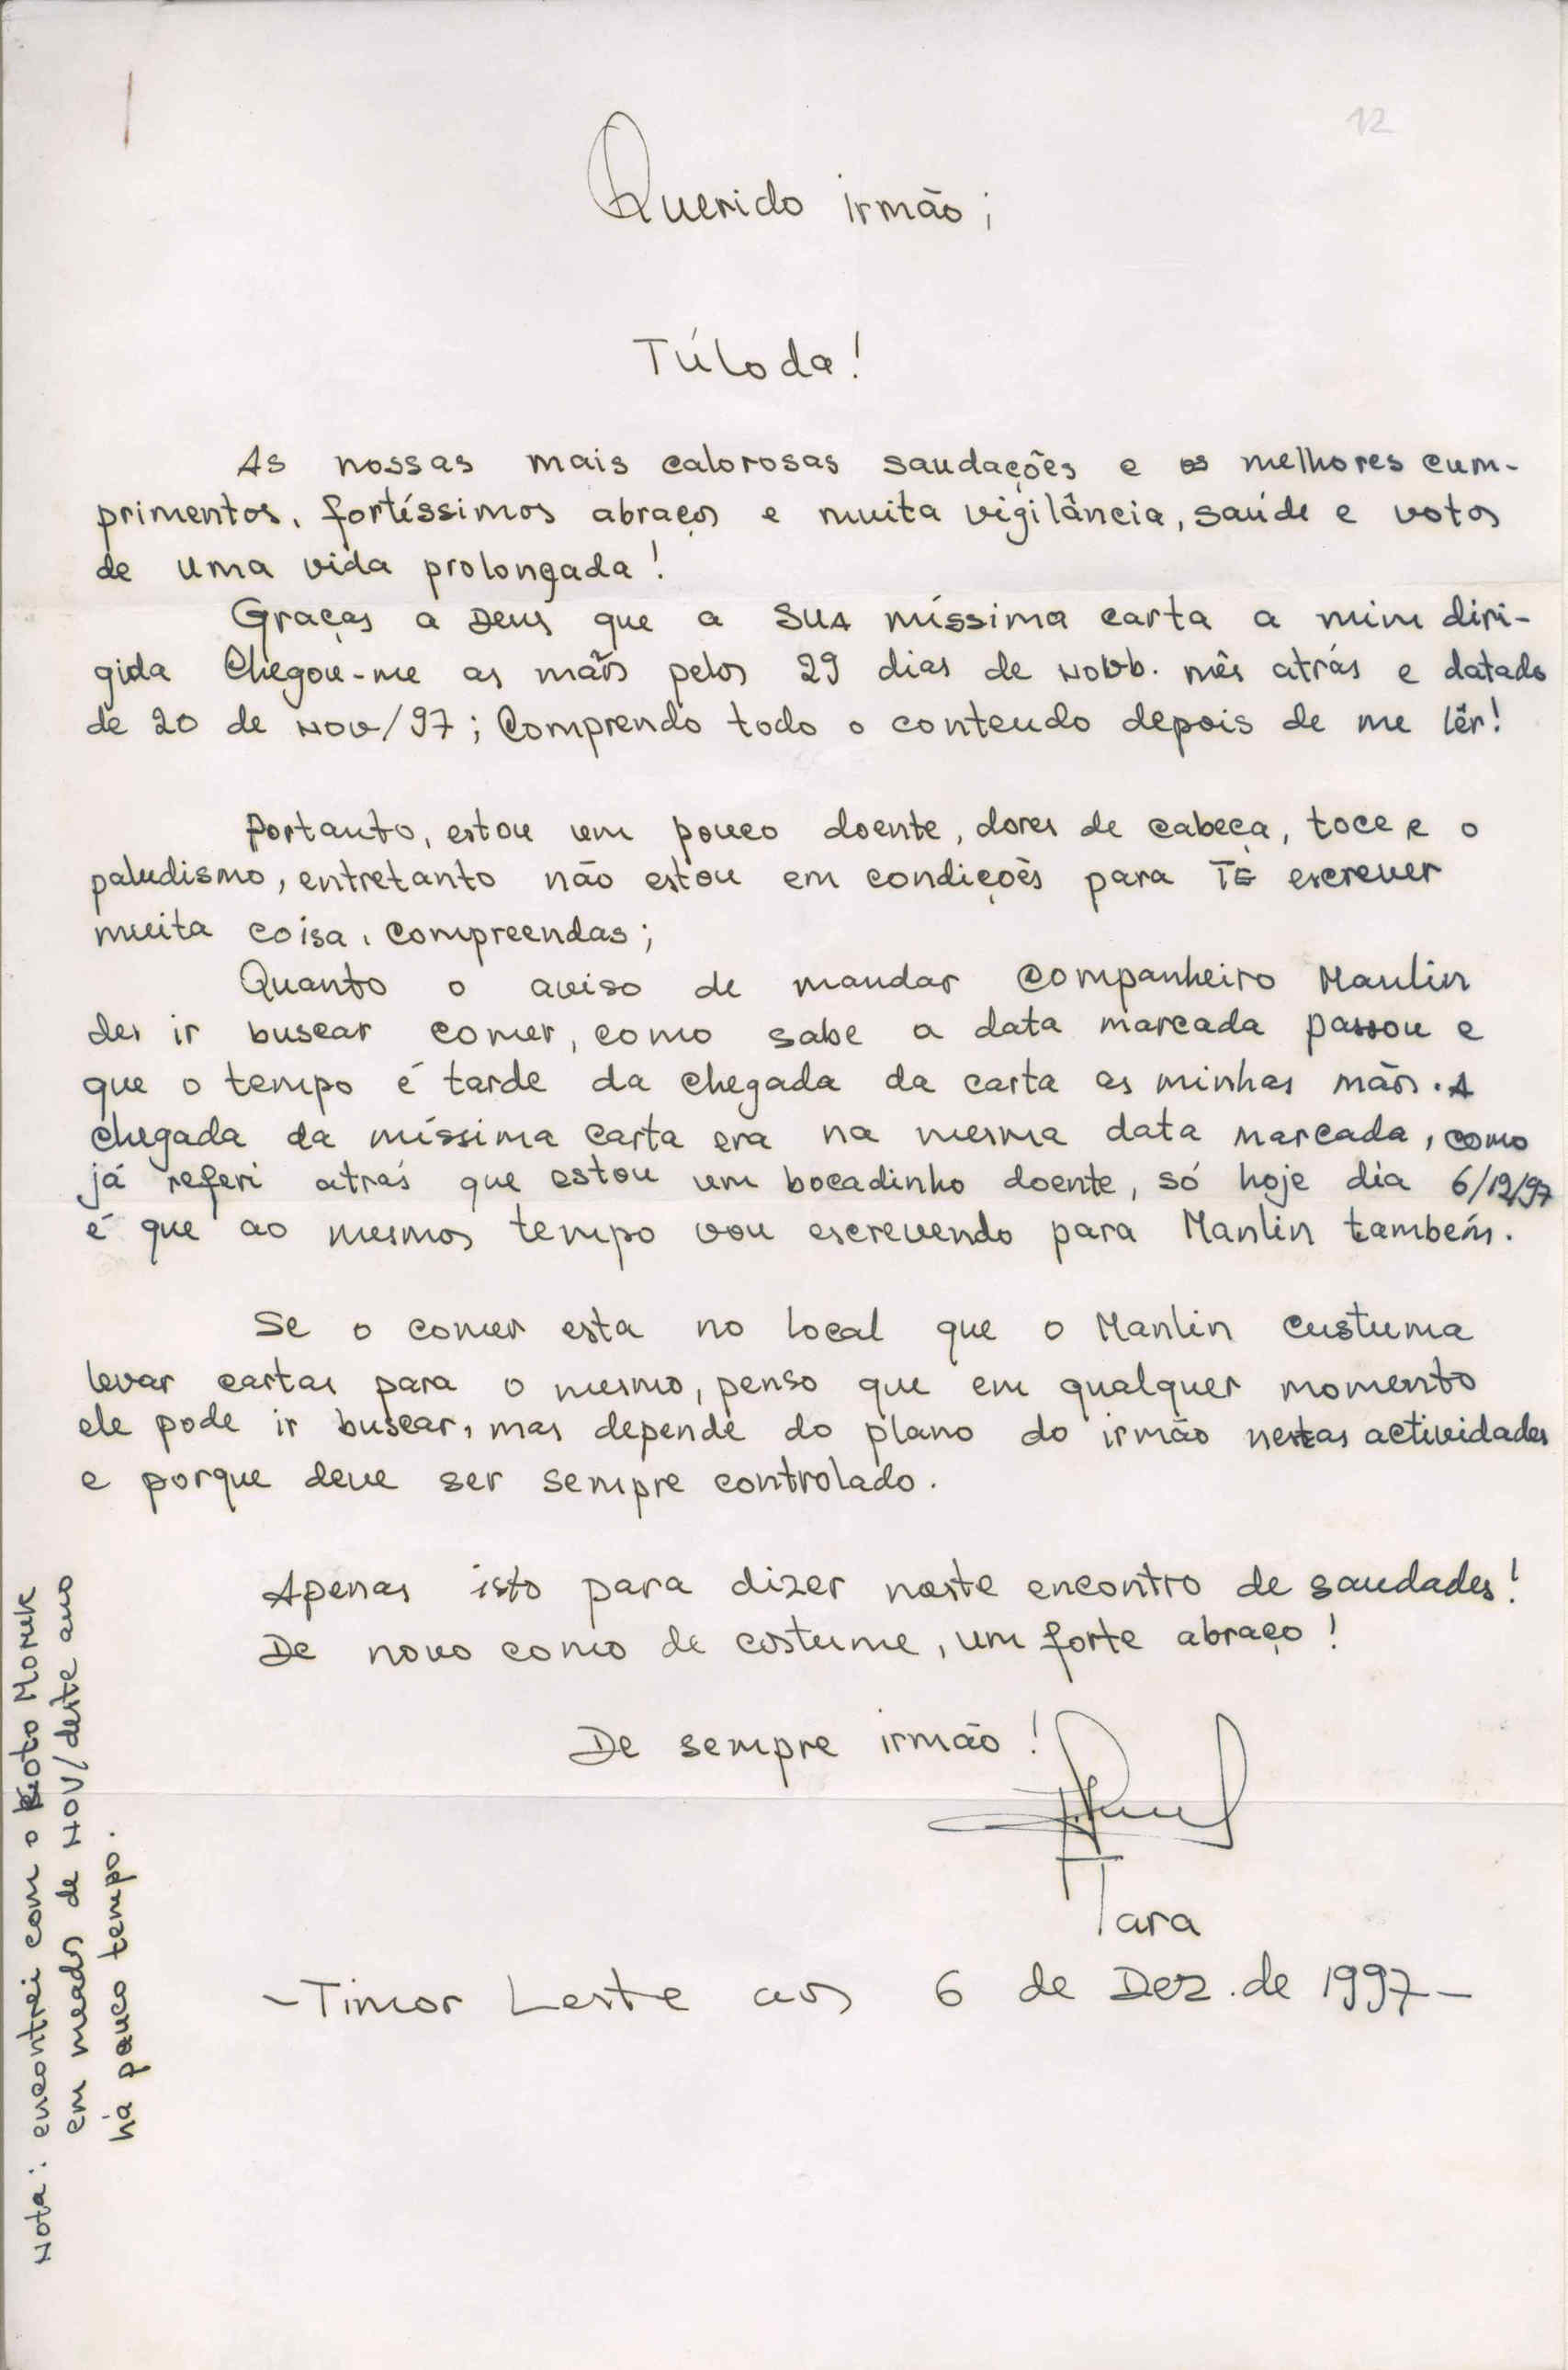 12
Querido irmão;
Túloda!
As nossas mais calorosas saudações e os melhores cum-
primentos, fortíssimos abraços e muita vigilância, saúde e votos
de uma vida prolongada!
Graças a Deus que a sua míssima carta a mim diri-
gida chegou-me as mãos pelos 29 dias de Novb. mês atrás e datado
de 20 de Nov/97; Comprendo todo o conteudo depois de me lêr!
Portanto, estou um pouco doente, dores de cabeça, toce e o
paludismo, entretanto não estou em condições para TE escrever
muita coisa, compreendas;
Quanto o aviso de mandar companheiro Manlin
des ir buscar comer, como sabe a data marcada passou e
que o tempo é tarde da chegada da carta as minhas mãos. A
chegada da míssima carta era na mesma data marcada, como
já referi atrás que estou um bocadinho doente, só hoje dia 6/12/97
é que ao mesmos tempo vou escrevendo para Manlin também.
Se o comer esta no local que o Manlin custuma
levar cartas para o mesmo, penso que em qualquer momento
ele pode ir buscar, mas depende do plano do irmão nestas actividades
e porque deve ser sempre controlado.
Apenas isto para dizer neste encontro de saudades!
De novo como de costume, um forte abraço!
De sempre irmão!
Tara
-Timor Leste aos 6 de Dez. de 1997-
Nota: encontrei com o Moruk
em meados de NOV/deste ano
há pouco tempo.